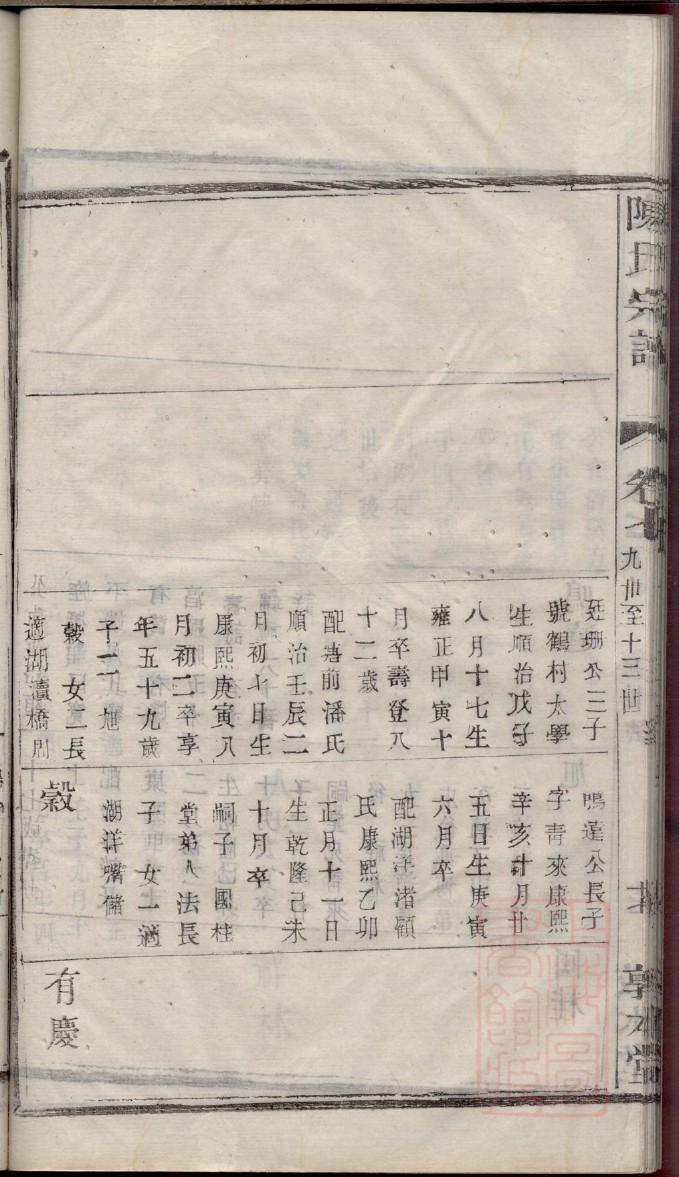 陳氏宗譜
卷七
九世至十三世
敦本堂
廷珊公三子
號鶴村太學
生順治戊子
八月十七生
雍正甲寅十
月卒壽登八
十二歲
配善前潘氏
順治壬辰二
日初七日生
康熙庚寅八
月初二卒享
年五十九歲
子二 旭
穀 女二長
適湖瀆橋周
鳴蓬公長子
字青來康熙
辛亥十月廿
五日生庚寅
六月卒
配湖洋渚顧
氏康熙乙卯
正月十一日
生乾隆己未
十月卒
嗣子 國柱
堂弟人法長
子 女一適
湖洋嘴儲
穀
有慶